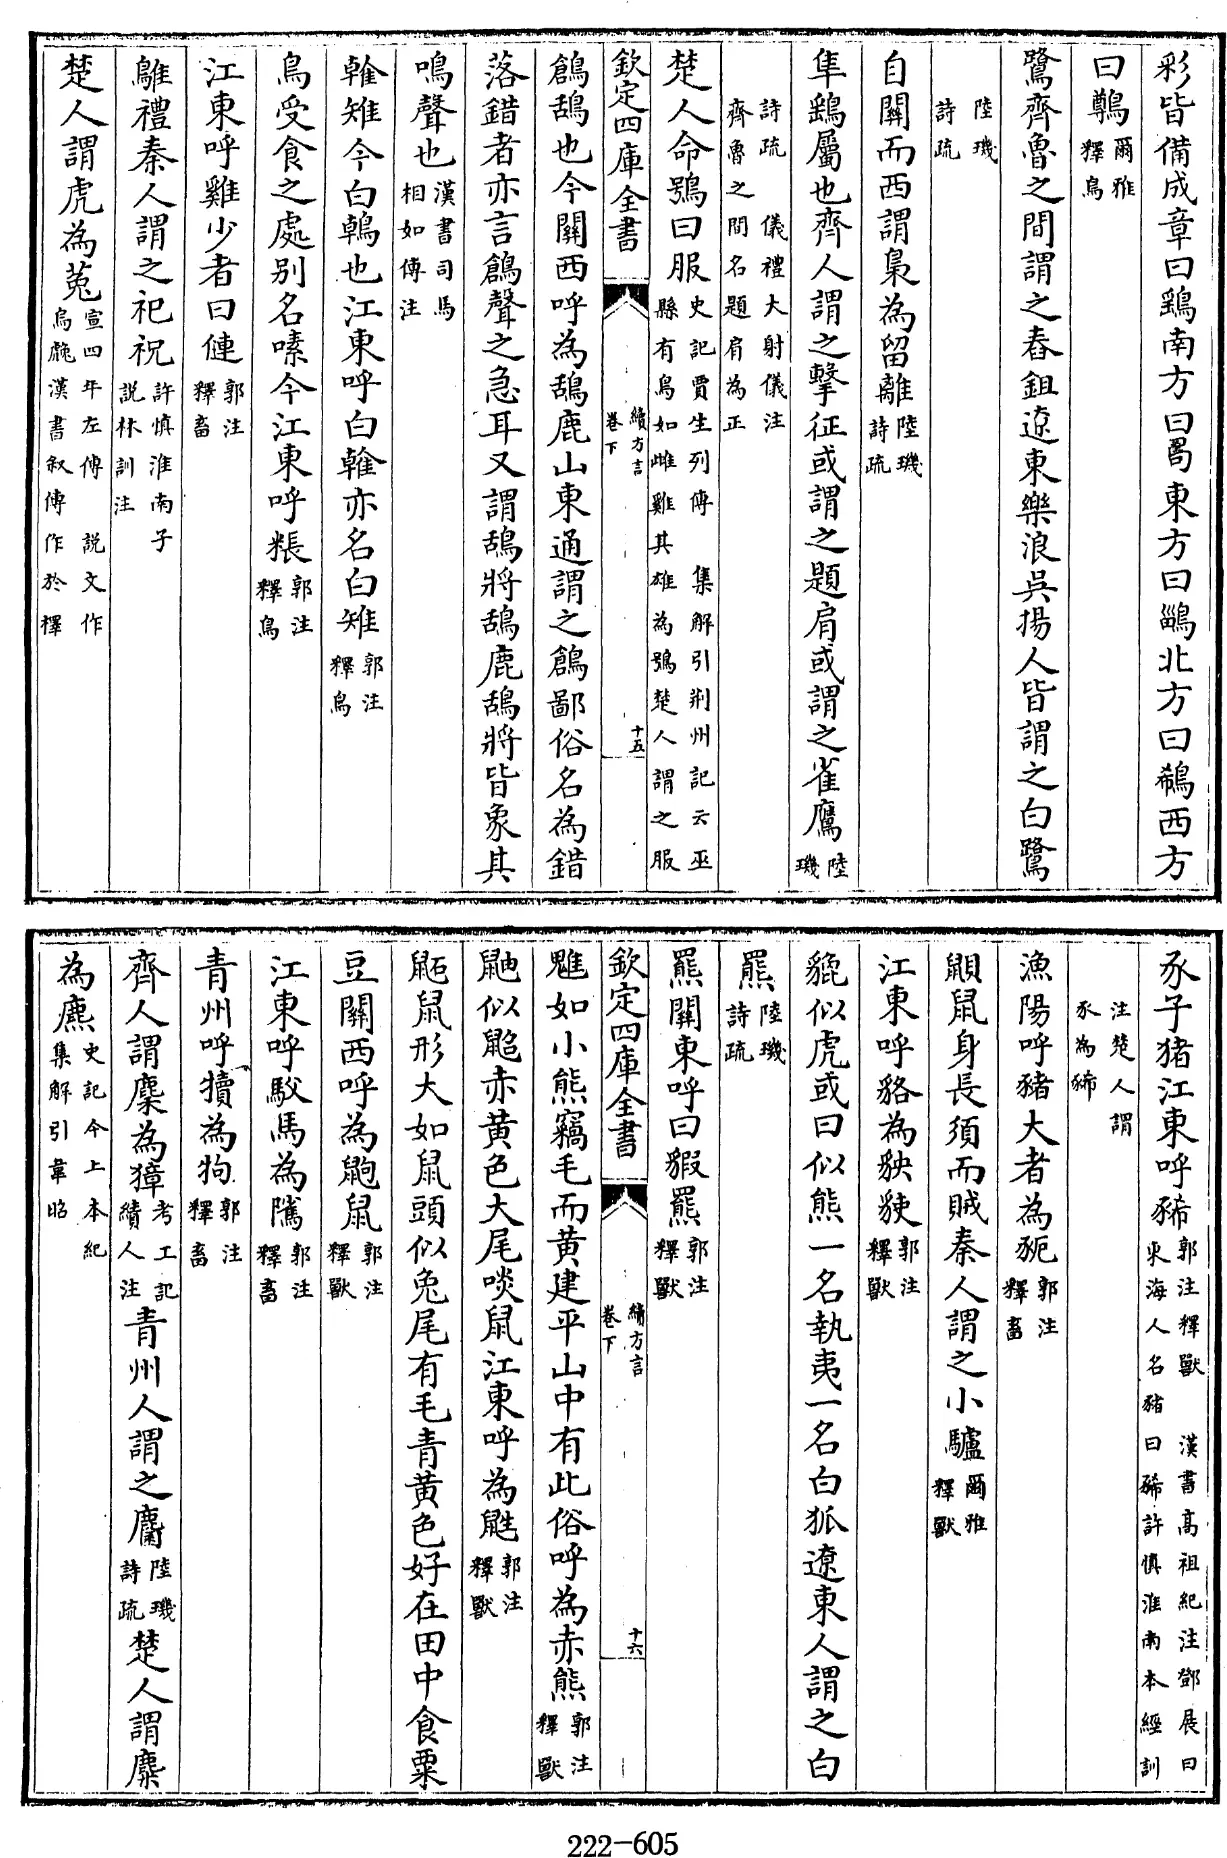 彩皆備成章曰鷂南方曰𠷎東方曰鶅北方曰鵗西方
曰鷷爾雅釋鳥
鷺齊魯之間謂之舂鉏遼東樂浪吳揚人皆謂之白鷺
陸璣詩疏
自關而西謂梟為留離陸璣詩疏
隼鷂屬也齊人謂之擊征或謂之題肩或謂之雀鷹陸璣
詩疏 儀禮大射儀注齊魯之間名題肩為正
楚人命鴞曰服史記賈生列傳 集解引荆州記云巫縣有鳥如雌雞其雄為鴞楚人謂之服
欽定四庫全書 續方言卷下 十五
鶬鴰也今關西呼為鴰鹿山東通謂之鶬鄙俗名為錯
落錯者亦言鶬聲之急耳又謂鴰將鴰鹿鴰將皆象其
鳴聲也漢書司馬相如傳注
鶾雉今白鶾也江東呼白鶾亦名白雉郭注釋鳥
鳥受食之處别名嗉今江東呼粻郭注釋鳥
江東呼雞少者曰僆郭注釋畜
鵻禮秦人謂之祀祝許慎淮南子説林訓注
楚人謂虎為菟宣四年左傳 説文作烏䖘漢書叙傳作於釋
豕子猪江東呼豨郭注釋獸 漢書高祖紀注鄧展曰東海人名猪曰豨許慎淮南本經訓
注楚人謂豕為豨
漁陽呼豬大者為豟郭注釋畜
鼳鼠身長須而賊秦人謂之小驢爾雅釋獸
江東呼貉為䝟䝘郭注釋獸
貔似虎或曰似熊一名執夷一名白狐遼東人謂之白
羆陸璣詩疏
羆關東呼曰貑羆郭注釋獸
欽定四庫全書 續方言卷下 十六
魋如小熊竊毛而黄建平山中有此俗呼為赤熊郭注釋獸
鼬似鼦赤黄色大尾啖鼠江東呼為鼪郭注釋獸
鼫鼠形大如鼠頭似兔尾有毛青黄色好在田中食粟
豆關西呼為鼩鼠郭注釋獸
江東呼駮馬為騭郭注釋畜
青州呼犢為㸸郭注釋畜
齊人謂麇為獐考工記繢人注青州人謂之麕陸璣詩疏楚人謂麋
為麃史記今上本紀集解引韋昭
222-605